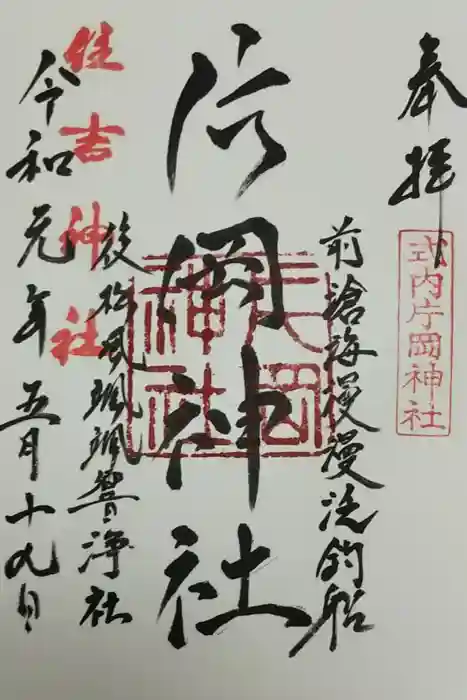 奉拝
式内片岡神社
前滄海漫漫洗釣船
片岡神社
片岡神社
後松風颯颯響浄社
住吉神社
令和元年五月十九日